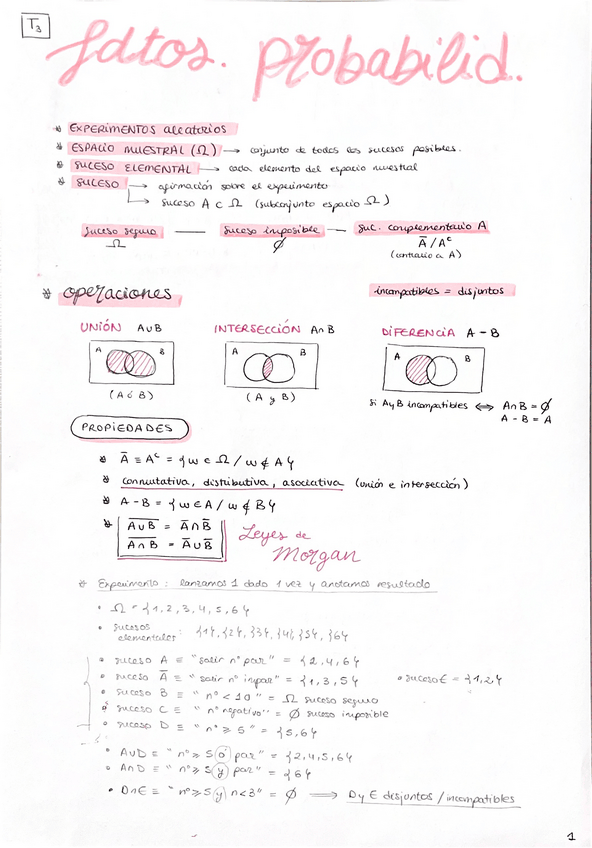 T3
fdtos. probabilid.
* EXPERIMENTOS aleatorios
* ESPACIO MUESTRAL (Ω) → conjunto de todos los sucesos posibles.
* SUCESO ELEMENTAL → cada elemento del espacio muestral
* SUCESO → afirmación sobre el experimento
↳ suceso A ⊂ Ω (subconjunto espacio Ω)
suceso seguro — suceso imposible — suc. complementario A
Ω ∅ Ā / Aᶜ
(contrario a A)
* operaciones
incompatibles = disjuntos
UNIÓN A∪B INTERSECCIÓN A∩B DIFERENCIA A - B
A B A B A B
(A ó B) (A y B)
si A y B incompatibles ⟺ A∩B = ∅
A - B = A
PROPIEDADES
* Ā ≡ Aᶜ = {ω ∈ Ω / ω ∉ A}
* conmutativa, distributiva, asociativa (unión e intersección)
* A - B = {ω ∈ A / ω ∉ B}
* A̅∪̅B̅ = Ā∩B̅
A̅∩̅B̅ = Ā∪B̅
Leyes de
Morgan
* Experimento: lanzamos 1 dado 1 vez y anotamos resultado
• Ω = {1, 2, 3, 4, 5, 6}
• sucesos
elementales: {1}, {2}, {3}, {4}, {5}, {6}
• suceso A ≡ "salir nº par" = {2, 4, 6}
• suceso Ā ≡ "salir nº impar" = {1, 3, 5} • suceso E = {1, 2}
• suceso B ≡ "nº < 10" = Ω suceso seguro
• suceso C ≡ "nº negativo" = ∅ suceso imposible
• suceso D ≡ "nº ≥ 5" = {5, 6}
• A∪D ≡ "nº ≥ 5 ó par" = {2, 4, 5, 6}
• A∩D ≡ "nº ≥ 5 y par" = {6}
• D∩E ≡ "nº ≥ 5 y n<3" = ∅ ⟹ D y E disjuntos / incompatibles
1